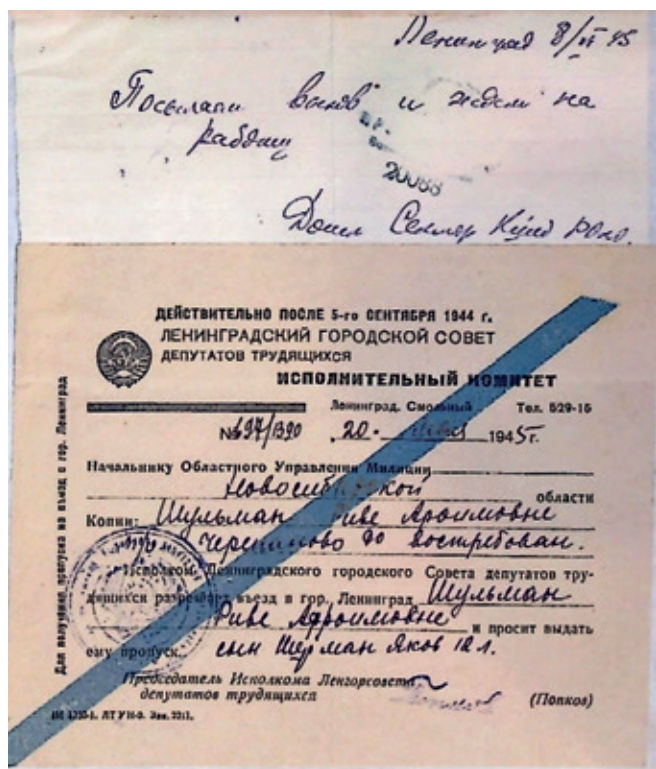 Ленинград 8/VI 45
Посылаем вызов и ждем на
работу
20088
ДЕЙСТВИТЕЛЬНО ПОСЛЕ 5-го СЕНТЯБРЯ 1944 г.
ЛЕНИНГРАДСКИЙ ГОРОДСКОЙ СОВЕТ
ДЕПУТАТОВ ТРУДЯЩИХСЯ
ИСПОЛНИТЕЛЬНЫЙ КОМИТЕТ
Ленинград, Смольный Тел. 529-16
№ 697/1390 „20“ 1945 г.
Начальнику Областного Управления Милиции
Новосибирской области
Копии: Шульман Риве Ароимовне
Черепаново до востребован.
Исполком Ленинградского городского Совета депутатов тру-
дящихся разрешает въезд в гор. Ленинград Шульман
Риве Афроимовне и просит выдать
ему пропуск. сын Шерман Яков 12 л.
Председатель Исполкома Ленгорсовета
депутатов трудящихся (Попков)
Для получения пропуска на въезд в гор. Ленинград